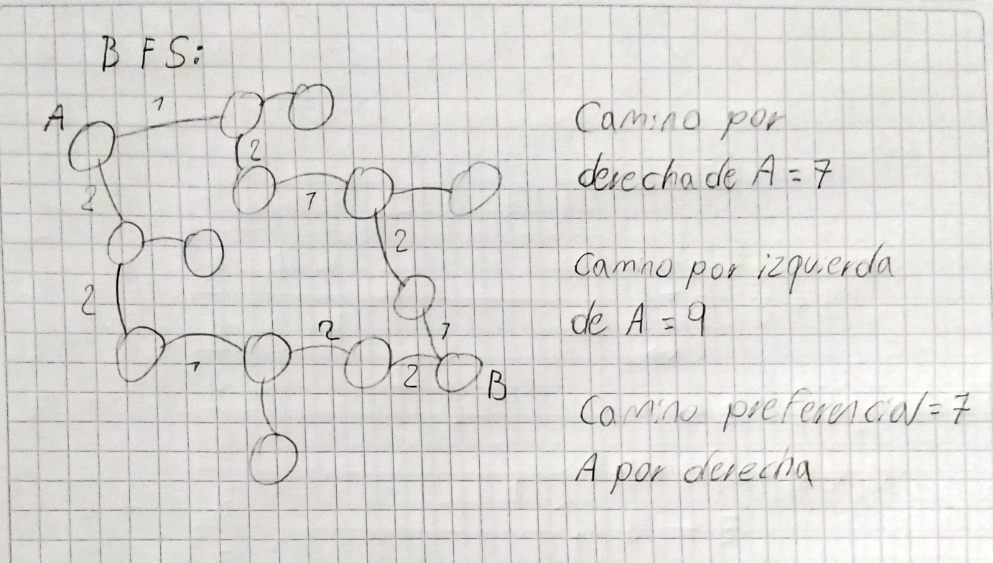 BFS:
A
1
2
2
1
2
2
1
2
1
2
2
B
Camino por
derecha de A = 7
Camno por izquierda
de A = 9
Camino preferencial = 7
A por derecha